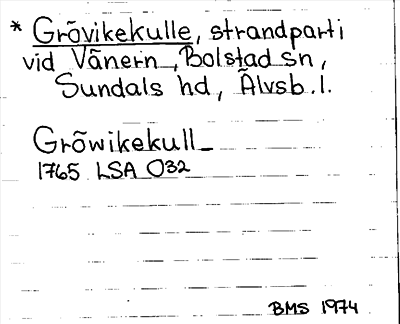 * Grövikekulle, strandparti
vid Vänern, Bolstad sn,
Sundals hd, Älvsb. l.
Gröwikekull
1765 LSA O32
BMS 1974